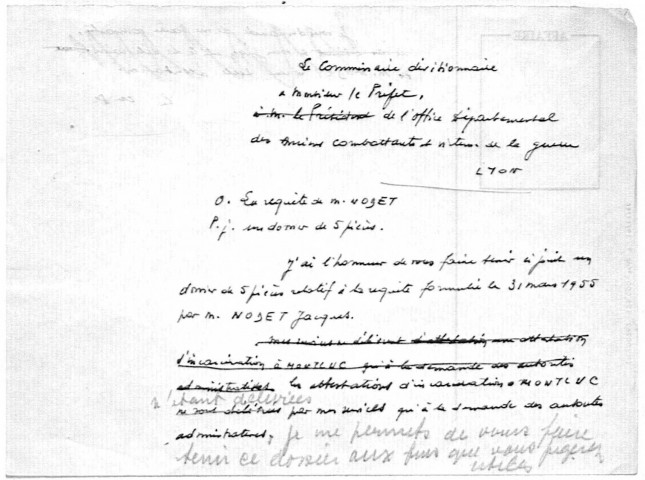 AFFAIRE
Le Commissaire divisionnaire
a Monsieur le Préfet,
à M. le Président de l'office Départemental
des Anciens combattants et victimes de la guerre
LYON
O. La requête de M. NODET
P. j. un dossier de 5 pièces.
J'ai l'honneur de vous faire tenir ci joint un
dossier de 5 pièces relatif à la requête formulée le 31 mars 1955
par M. NODET Jacques.
mes services ne délivrent d'attestation une attestation
d'incarcération à MONTLUC qu'à la demande des autorités
administratives les attestations d'incarcération à MONTLUC
n'étant délivrées
ne sont délivrées par mes services qu'à la demande des autorités
administratives, je me permets de vous faire
tenir ce dossier aux fins que vous jugerez
utiles